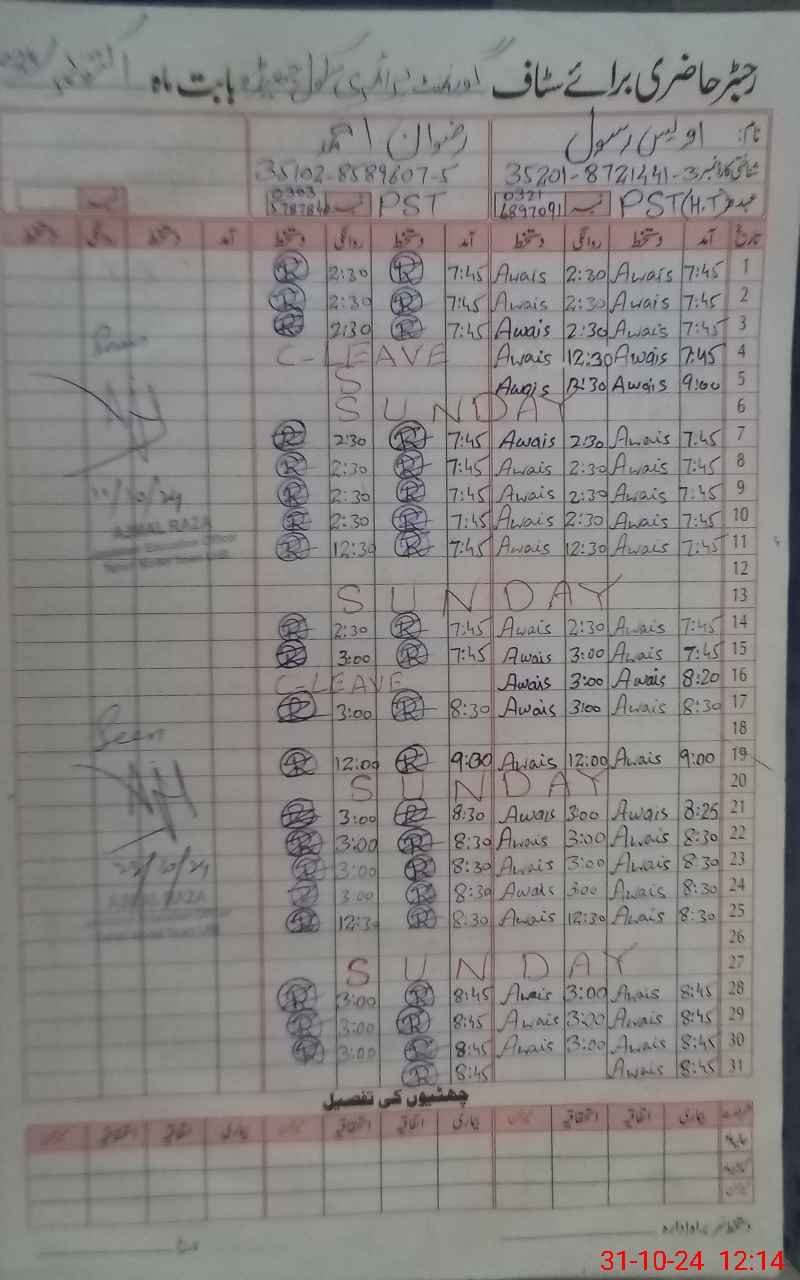 رجسٹر حاضری برائے سٹاف گورنمنٹ پرائمری سکول بابت ماہ اکتوبر
نام: اویس رسول رضوان احمد
شناختی کارڈ نمبر 35201-8721441-3 35102-8589607-5
عہدہ PST (H.T) 0321 6897091 PST 0303
تاریخ آمد دستخط روانگی دستخط آمد دستخط روانگی دستخط آمد دستخط روانگی دستخط
1 7:45 Awais 2:30 Awais 7:45 R 2:30 R
2 7:45 Awais 2:30 Awais 7:45 R 2:30 R
3 7:45 Awais 2:30 Awais 7:45 R 2:30 R
4 7:45 Awais 12:30 Awais C-LEAVE
5 9:00 Awais Awais S
6 SUNDAY
7 7:45 Awais 2:30 Awais 7:45 R 2:30 R
8 7:45 Awais 2:30 Awais 7:45 R 2:30 R
9 7:45 Awais 2:30 Awais 7:45 R 2:30 R
10 7:45 Awais 2:30 Awais 7:45 R 2:30 R
11 7:45 Awais 12:30 Awais 7:45 R 12:30 R
12
13 SUNDAY
14 7:45 Awais 2:30 Awais 7:45 R 2:30 R
15 7:45 Awais 3:00 Awais 7:45 R 3:00 R
16 8:20 Awais 3:00 Awais C-LEAVE
17 8:30 Awais 3:00 Awais 8:30 R 3:00 R
18
Seen
19 9:00 Awais 12:00 Awais 9:00 R 12:00 R
20 SUNDAY
21 8:25 Awais 3:00 Awais 8:30 R 3:00 R
22 8:30 Awais 3:00 Awais 8:30 R 3:00 R
23 8:30 Awais 3:00 Awais 8:30 R 3:00 R
24 8:30 Awais 3:00 Awais 8:30 R 3:00 R
25 8:30 Awais 12:30 Awais 8:30 R 12:30 R
AJMAL RAZA
26
27 SUNDAY
28 8:45 Awais 3:00 Awais 8:45 R 3:00 R
29 8:45 Awais 3:00 Awais 8:45 R 3:00 R
30 8:45 Awais 3:00 Awais 8:45 R 3:00 R
31 8:45 Awais 8:45 R
چھٹیوں کی تفصیل
بیماری اتفاقیہ استحقاقیہ میزان بیماری اتفاقیہ استحقاقیہ میزان بیماری اتفاقیہ استحقاقیہ میزان
سابقہ
میزان
دستخط سربراہ ادارہ
تاریخ
31-10-24 12:14